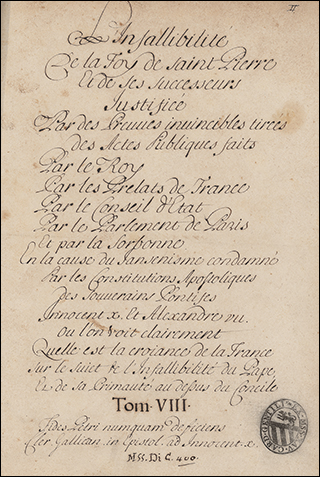 II
L'Infallibilité
De la Foy de saint Pierre
Et de ses successeurs
Justifiée
Par des Preuves invincibles tirées
des Actes Publiques faits
Par le Roy
Par les Prelats de France
Par le Conseil d'Etat
Par le Parlement de Paris
Et par la Sorbonne
En la cause du Jansenisme condamné
Par les Constitutions Apostoliques
des Souverains Pontifes
Innocent x. et Alexandre VII.
ou l'on voit clairement
Quelle est la croiance de la France
sur le sujet de l'Infallibilité du Pape,
Et de sa Primauté au dessus du Concile
Tom. VIII.
Fides Petri numquam deficiens
Cler. Gallican. in Epistol. ad Innocent. x.
MSS. Di C. 400.